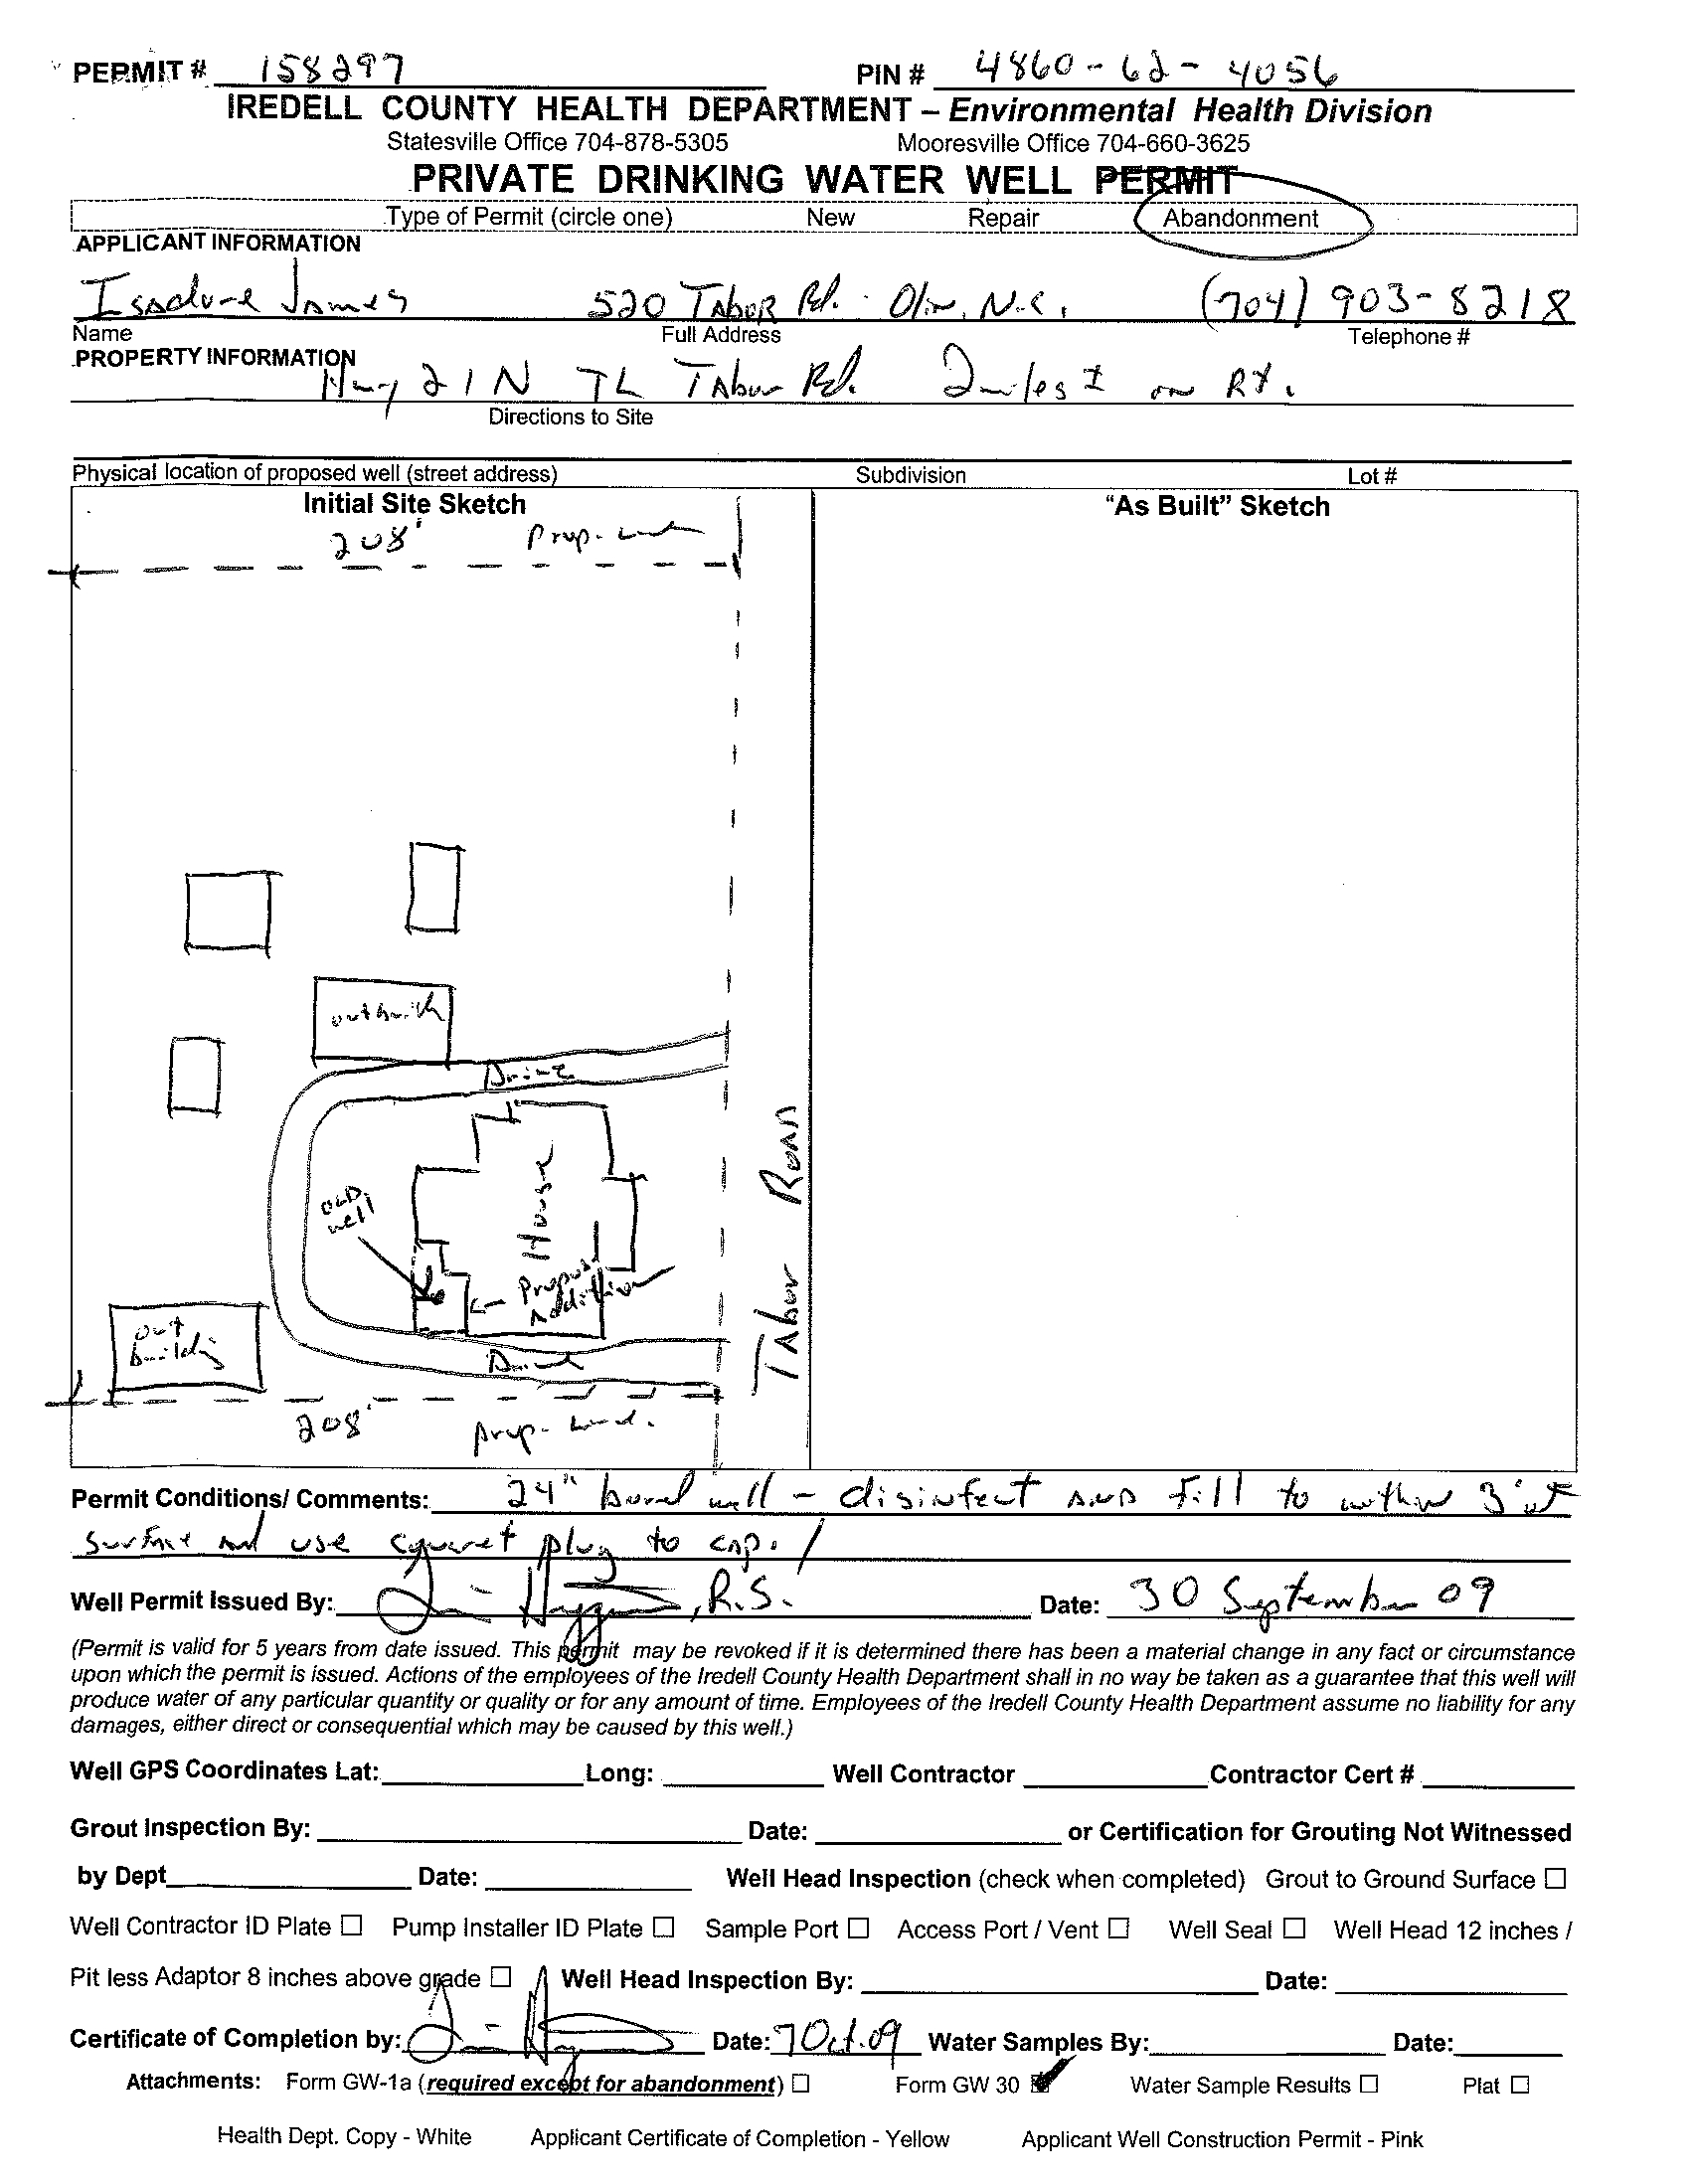 PERMIT # 158297 PIN # 4860-62-4056
IREDELL COUNTY HEALTH DEPARTMENT – Environmental Health Division
Statesville Office 704-878-5305 Mooresville Office 704-660-3625
PRIVATE DRINKING WATER WELL PERMIT
Type of Permit (circle one) New Repair Abandonment
APPLICANT INFORMATION
Isadore James 520 Tabor Rd. Olin, N.C. (704) 903-8218
Name Full Address Telephone #
PROPERTY INFORMATION
Hwy 21 N TL Tabor Rd. 2 miles ± on Rt.
Directions to Site
Physical location of proposed well (street address) Subdivision Lot #
Initial Site Sketch "As Built" Sketch
208' Prop. Line
outbuild
Drive
House
OLD well
Proposed Addition
Tabor Road
out building
Drive
208' prop. Line.
Permit Conditions/ Comments: 24" bored well - disinfect AND fill to within 3' of
surface and use cement plug to cap.
Well Permit Issued By: R.S. Date: 30 September 09
(Permit is valid for 5 years from date issued. This permit may be revoked if it is determined there has been a material change in any fact or circumstance
upon which the permit is issued. Actions of the employees of the Iredell County Health Department shall in no way be taken as a guarantee that this well will
produce water of any particular quantity or quality or for any amount of time. Employees of the Iredell County Health Department assume no liability for any
damages, either direct or consequential which may be caused by this well.)
Well GPS Coordinates Lat: Long: Well Contractor Contractor Cert #
Grout Inspection By: Date: or Certification for Grouting Not Witnessed
by Dept Date: Well Head Inspection (check when completed) Grout to Ground Surface ☐
Well Contractor ID Plate ☐ Pump Installer ID Plate ☐ Sample Port ☐ Access Port / Vent ☐ Well Seal ☐ Well Head 12 inches /
Pit less Adaptor 8 inches above grade ☐ Well Head Inspection By: Date:
Certificate of Completion by: Date: 7 Oct. 09 Water Samples By: Date:
Attachments: Form GW-1a (required except for abandonment) ☐ Form GW 30 ☑ Water Sample Results ☐ Plat ☐
Health Dept. Copy - White Applicant Certificate of Completion - Yellow Applicant Well Construction Permit - Pink